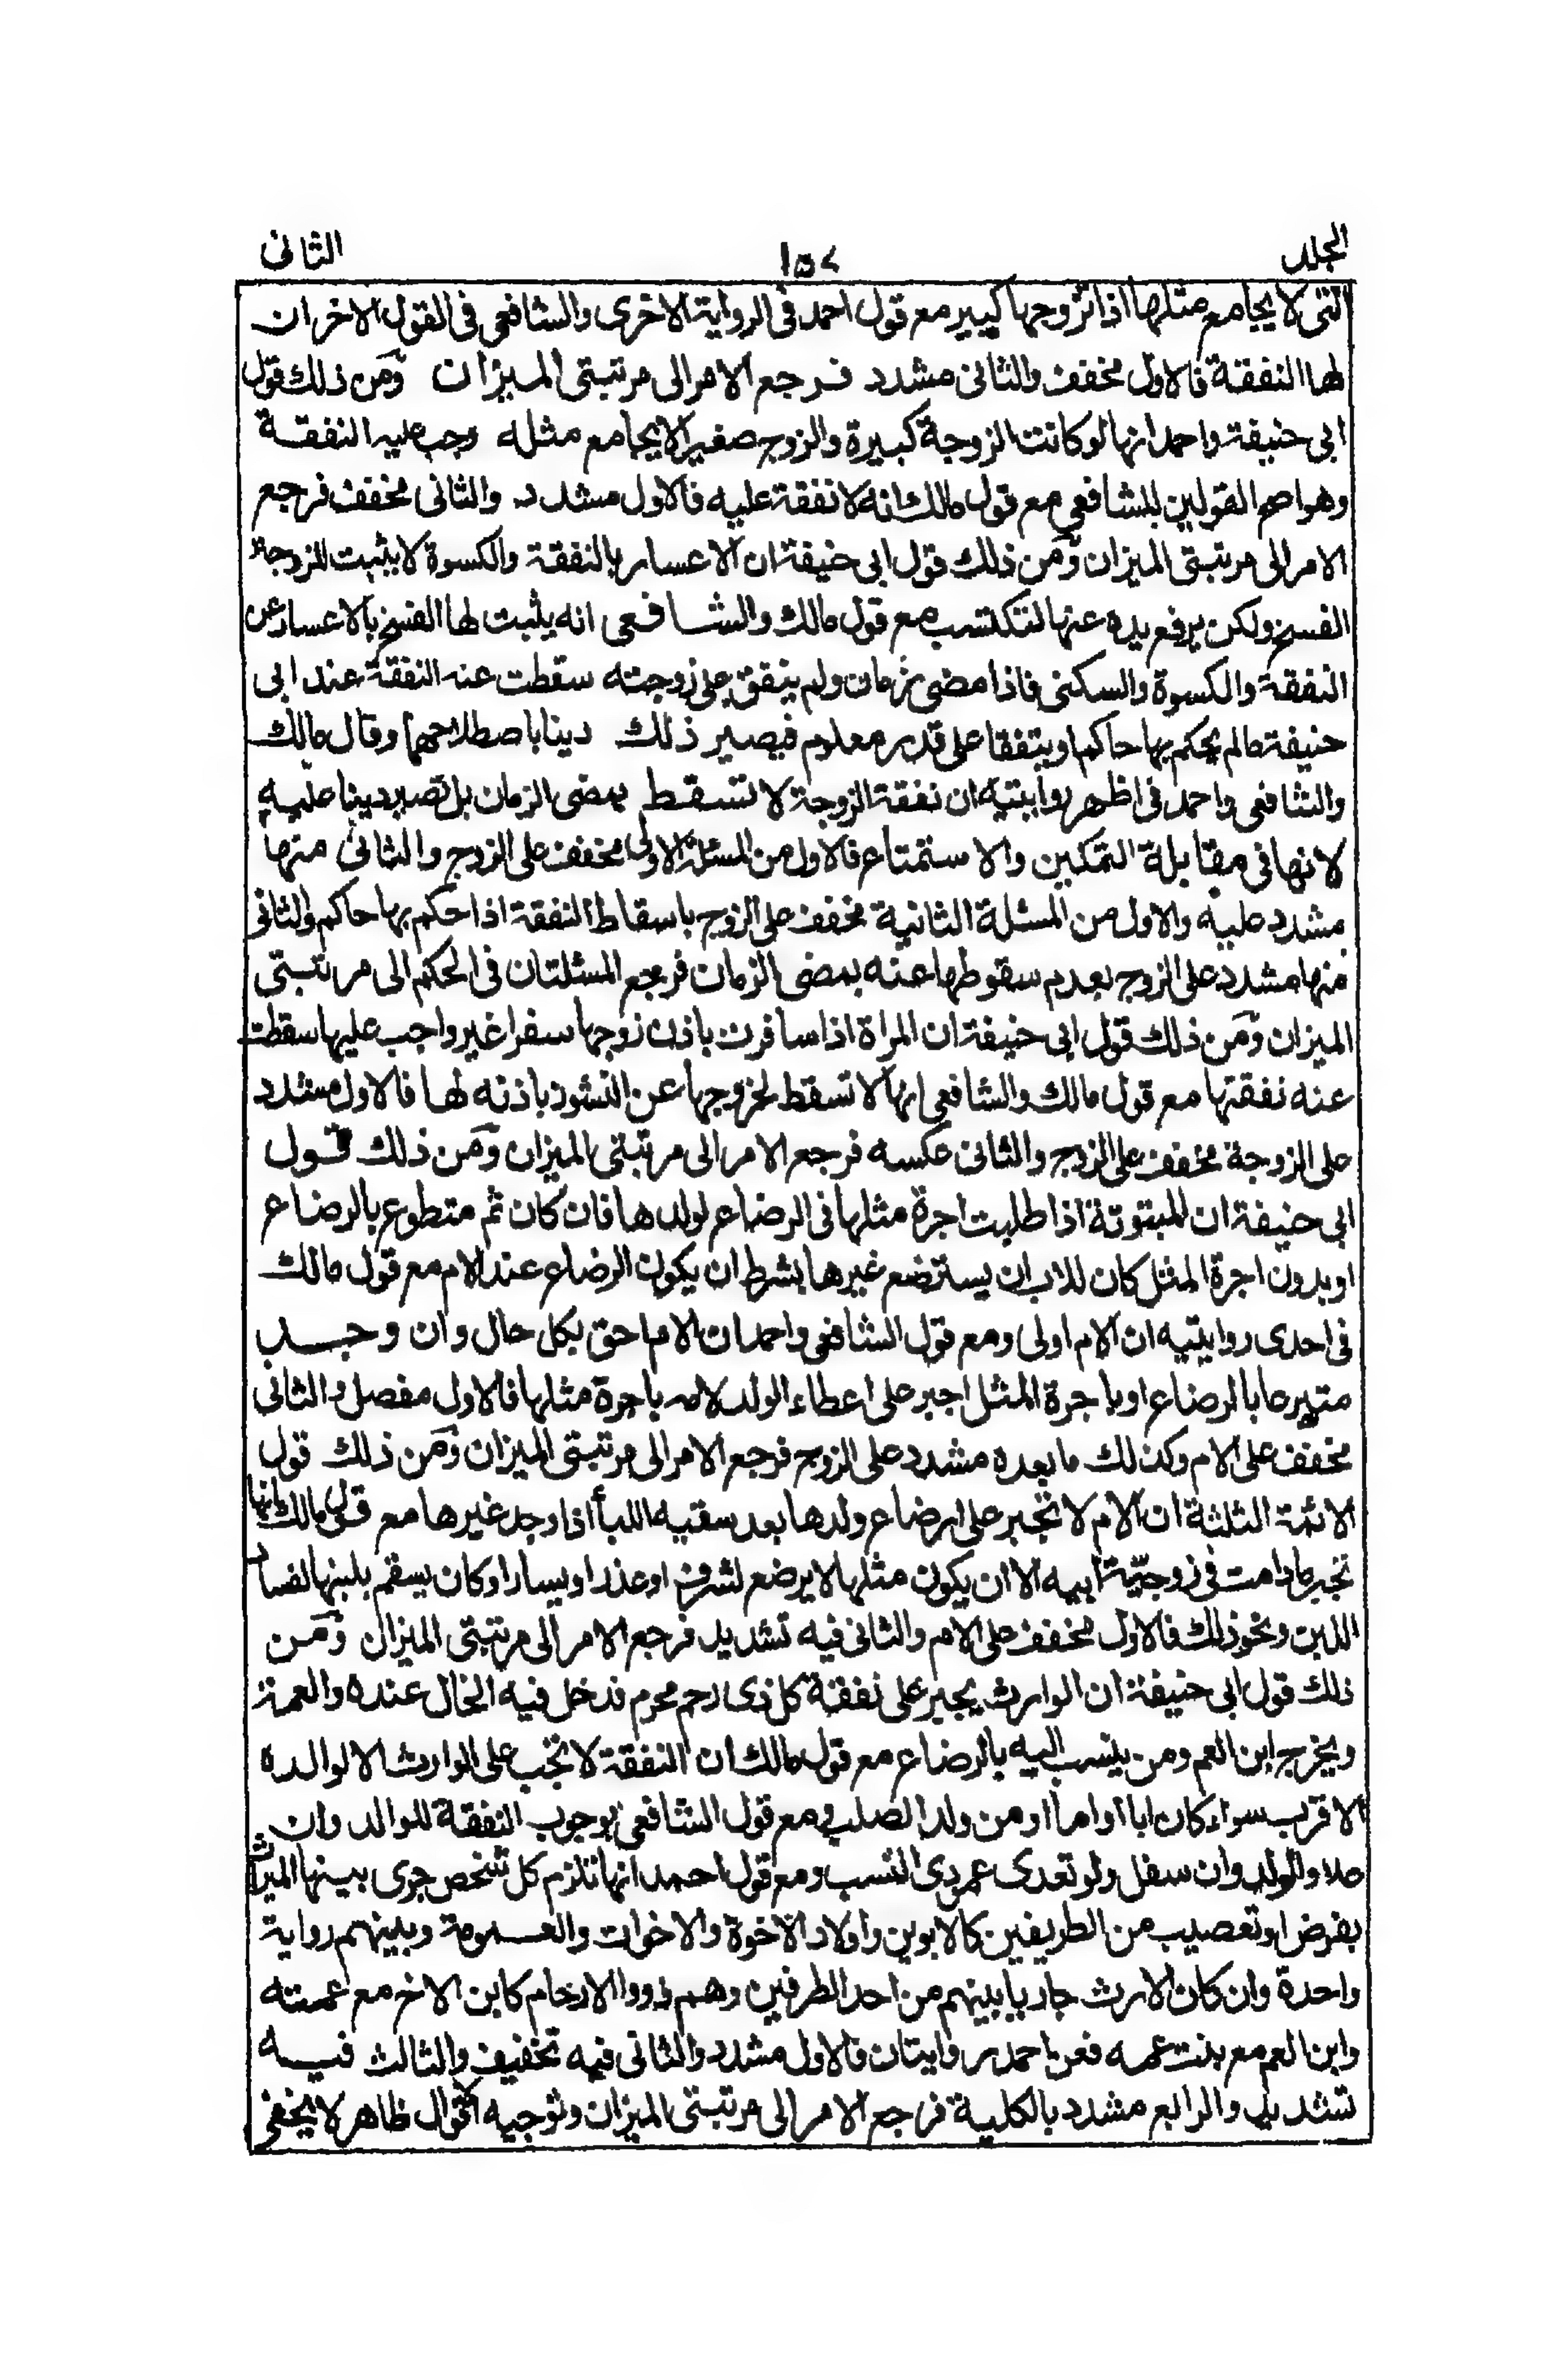 الجلد ١٥٧ الثانى
التى لا يجامع مثلها اذا تزوجها كبير مع قول احمد فى الرواية الاخرى والشافعى فى القول الاخر ان
لها النفقة فالاول مخفف والثانى مشدد فرجع الامر الى مرتبتى الميزان ومن ذلك قول
ابى حنيفة واحمد انها لو كانت الزوجة كبيرة والزوج صغيرا لا يجامع مثله وجب عليه النفقة
وهو اصح القولين للشافعى مع قول مالك انه لا نفقة عليه فالاول مشدد والثانى مخفف فرجع
الامر الى مرتبتى الميزان ومن ذلك قول ابى حنيفة ان الاعسار بالنفقة والكسوة لا يثبت للزوجة
الفسخ ولكن يرفع يده عنها لتكتسب مع قول مالك والشافعى انه يثبت لها الفسخ بالاعسار عن
النفقة والكسوة والسكنى فاذا مضى زمان ولم ينفق على زوجته سقطت عنه النفقة عند ابى
حنيفة مالم يحكم بها حاكم او يتفقا على قدر معلوم فيصير ذلك دينا باصطلاحهما وقال مالك
والشافعى واحمد فى اظهر روايتيه ان نفقة الزوجة لا تسقط بمضى الزمان بل تصير دينا عليه
لانها فى مقابلة التمكين والاستمتاع فالاول من المسئلة الاولى مخفف على الزوج والثانى منها
مشدد عليه والاول من المسئلة الثانية مخفف على الزوج باسقاط النفقة اذا حكم بها حاكم والثانى
منها مشدد على الزوج بعدم سقوطها عنه بمضى الزمان فرجع المسئلتان فى الحكم الى مرتبتى
الميزان ومن ذلك قول ابى حنيفة ان المراة اذا سافرت باذن زوجها سفرا غير واجب عليها سقطت
عنه نفقتها مع قول مالك والشافعى انها لا تسقط لخروجها عن النشوز باذنه لها فالاول مشدد
على الزوجة مخفف على الزوج والثانى عكسه فرجع الامر الى مرتبتى الميزان ومن ذلك قول
ابى حنيفة ان للمبتوتة اذا طلبت اجرة مثلها فى الرضاع لولدها فان كان ثم متطوع بالرضاع
او بدون اجرة المثل كان للاب ان يسترضع غيرها بشرط ان يكون الرضاع عند الام مع قول مالك
فى احدى روايتيه ان الام اولى ومع قول الشافعى واحمد ان الام احق بكل حال وان وجد
متبرعا بالرضاع او باجرة المثل اجبر على اعطاء الولد لامه باجرة مثلها فالاول مفصل والثانى
مخفف على الام وكذلك ما بعده مشدد على الزوج فرجع الامر الى مرتبتى الميزان ومن ذلك قول
الائمة الثلثة ان الام لا تجبر على ارضاع ولدها بعد سقيه اللبأ اذا وجد غيرها مع قول مالك بانها
تجبر مادامت فى زوجيّة ابيه الا ان يكون مثلها لا يرضع لشرف او عذر او يسار او كان يسقم بلبنها لفساد
اللبن ونحو ذلك فالاول مخفف على الام والثانى فيه تشديد فرجع الامر الى مرتبتى الميزان ومن
ذلك قول ابى حنيفة ان الوارث يجبر على نفقة كل ذى رحم محرم فدخل فيه الخال عنده والعمة
ويخرج ابن العم ومن ينسب اليه بالرضاع مع قول مالك ان النفقة لا تجب على الوارث الا لوالده
الاقرب سواء كان ابا او اما او من ولد الصلب ومع قول الشافعى بوجوب النفقة للوالد وان
علا والولد وان سفل ولو تعدى عمودى النسب ومع قول احمد انها تلزم كل شخص جرى بينهما الميراث
بفرض او تعصيب من الطريفين كالابوين واولاد الاخوة والاخوات والعمومة وبنيهم رواية
واحدة وان كان الارث جاريا بينهم من احد الطرفين وهم ذووا الارحام كابن الاخ مع عمته
وابن العم مع بنت عمه فعن احمد روايتان فالاول مشدد والثانى فيه تخفيف والثالث فيه
تشديد والرابع مشدد بالكلية فرجع الامر الى مرتبتى الميزان وتوجيه الاقوال ظاهر لا يخفى